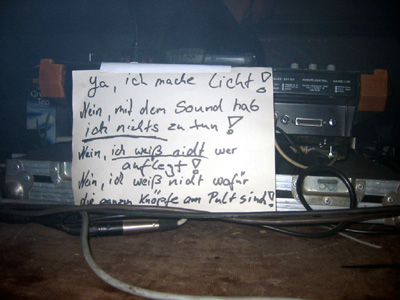 Ja, ich mache Licht!
Nein, mit dem Sound hab
ich nichts zu tun!
Nein, ich weiß nicht wer
auflegt!
Nein, ich weiß nicht wofür
die ganzen Knöpfe am Pult sind!